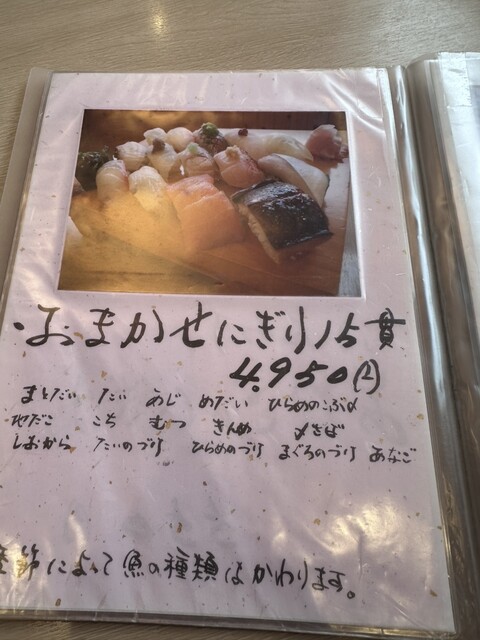 ・おまかせにぎり15貫
4.950円
まとだい たい あじ めだい ひらめのこぶ〆
地だこ こち むつ きんめ 〆さば
しおから たいのづけ ひらめのづけ まぐろのづけ あなご
季節によって魚の種類はかわります。